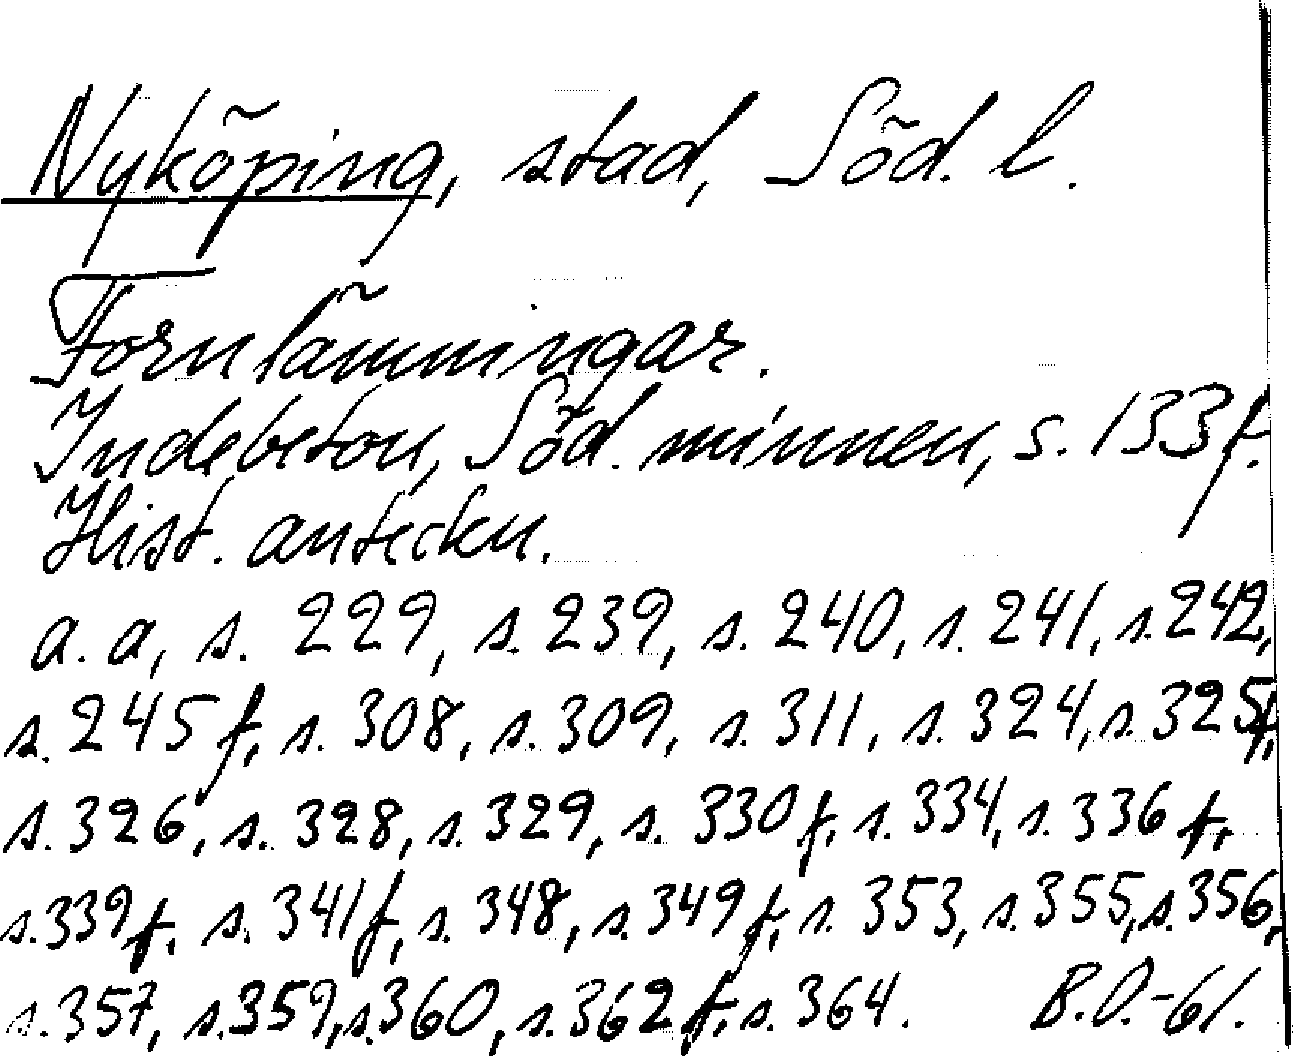 Nyköping, stad, Söd. l.
Fornlämningar.
Indebetou, Söd. minnen, s. 133 f.
Hist. anteckn.
a. a, s. 229, s. 239, s. 240, s. 241, s. 242,
s. 245 f, s. 308, s. 309, s. 311, s. 324, s. 325f,
s. 326, s. 328, s. 329, s. 330 f, s. 334, s. 336 f,
s. 339 f, s. 341 f, s. 348, s. 349 f, s. 353, s. 355, s. 356,
s. 357, s. 359, s. 360, s. 362 f, s. 364. B.O.-61.